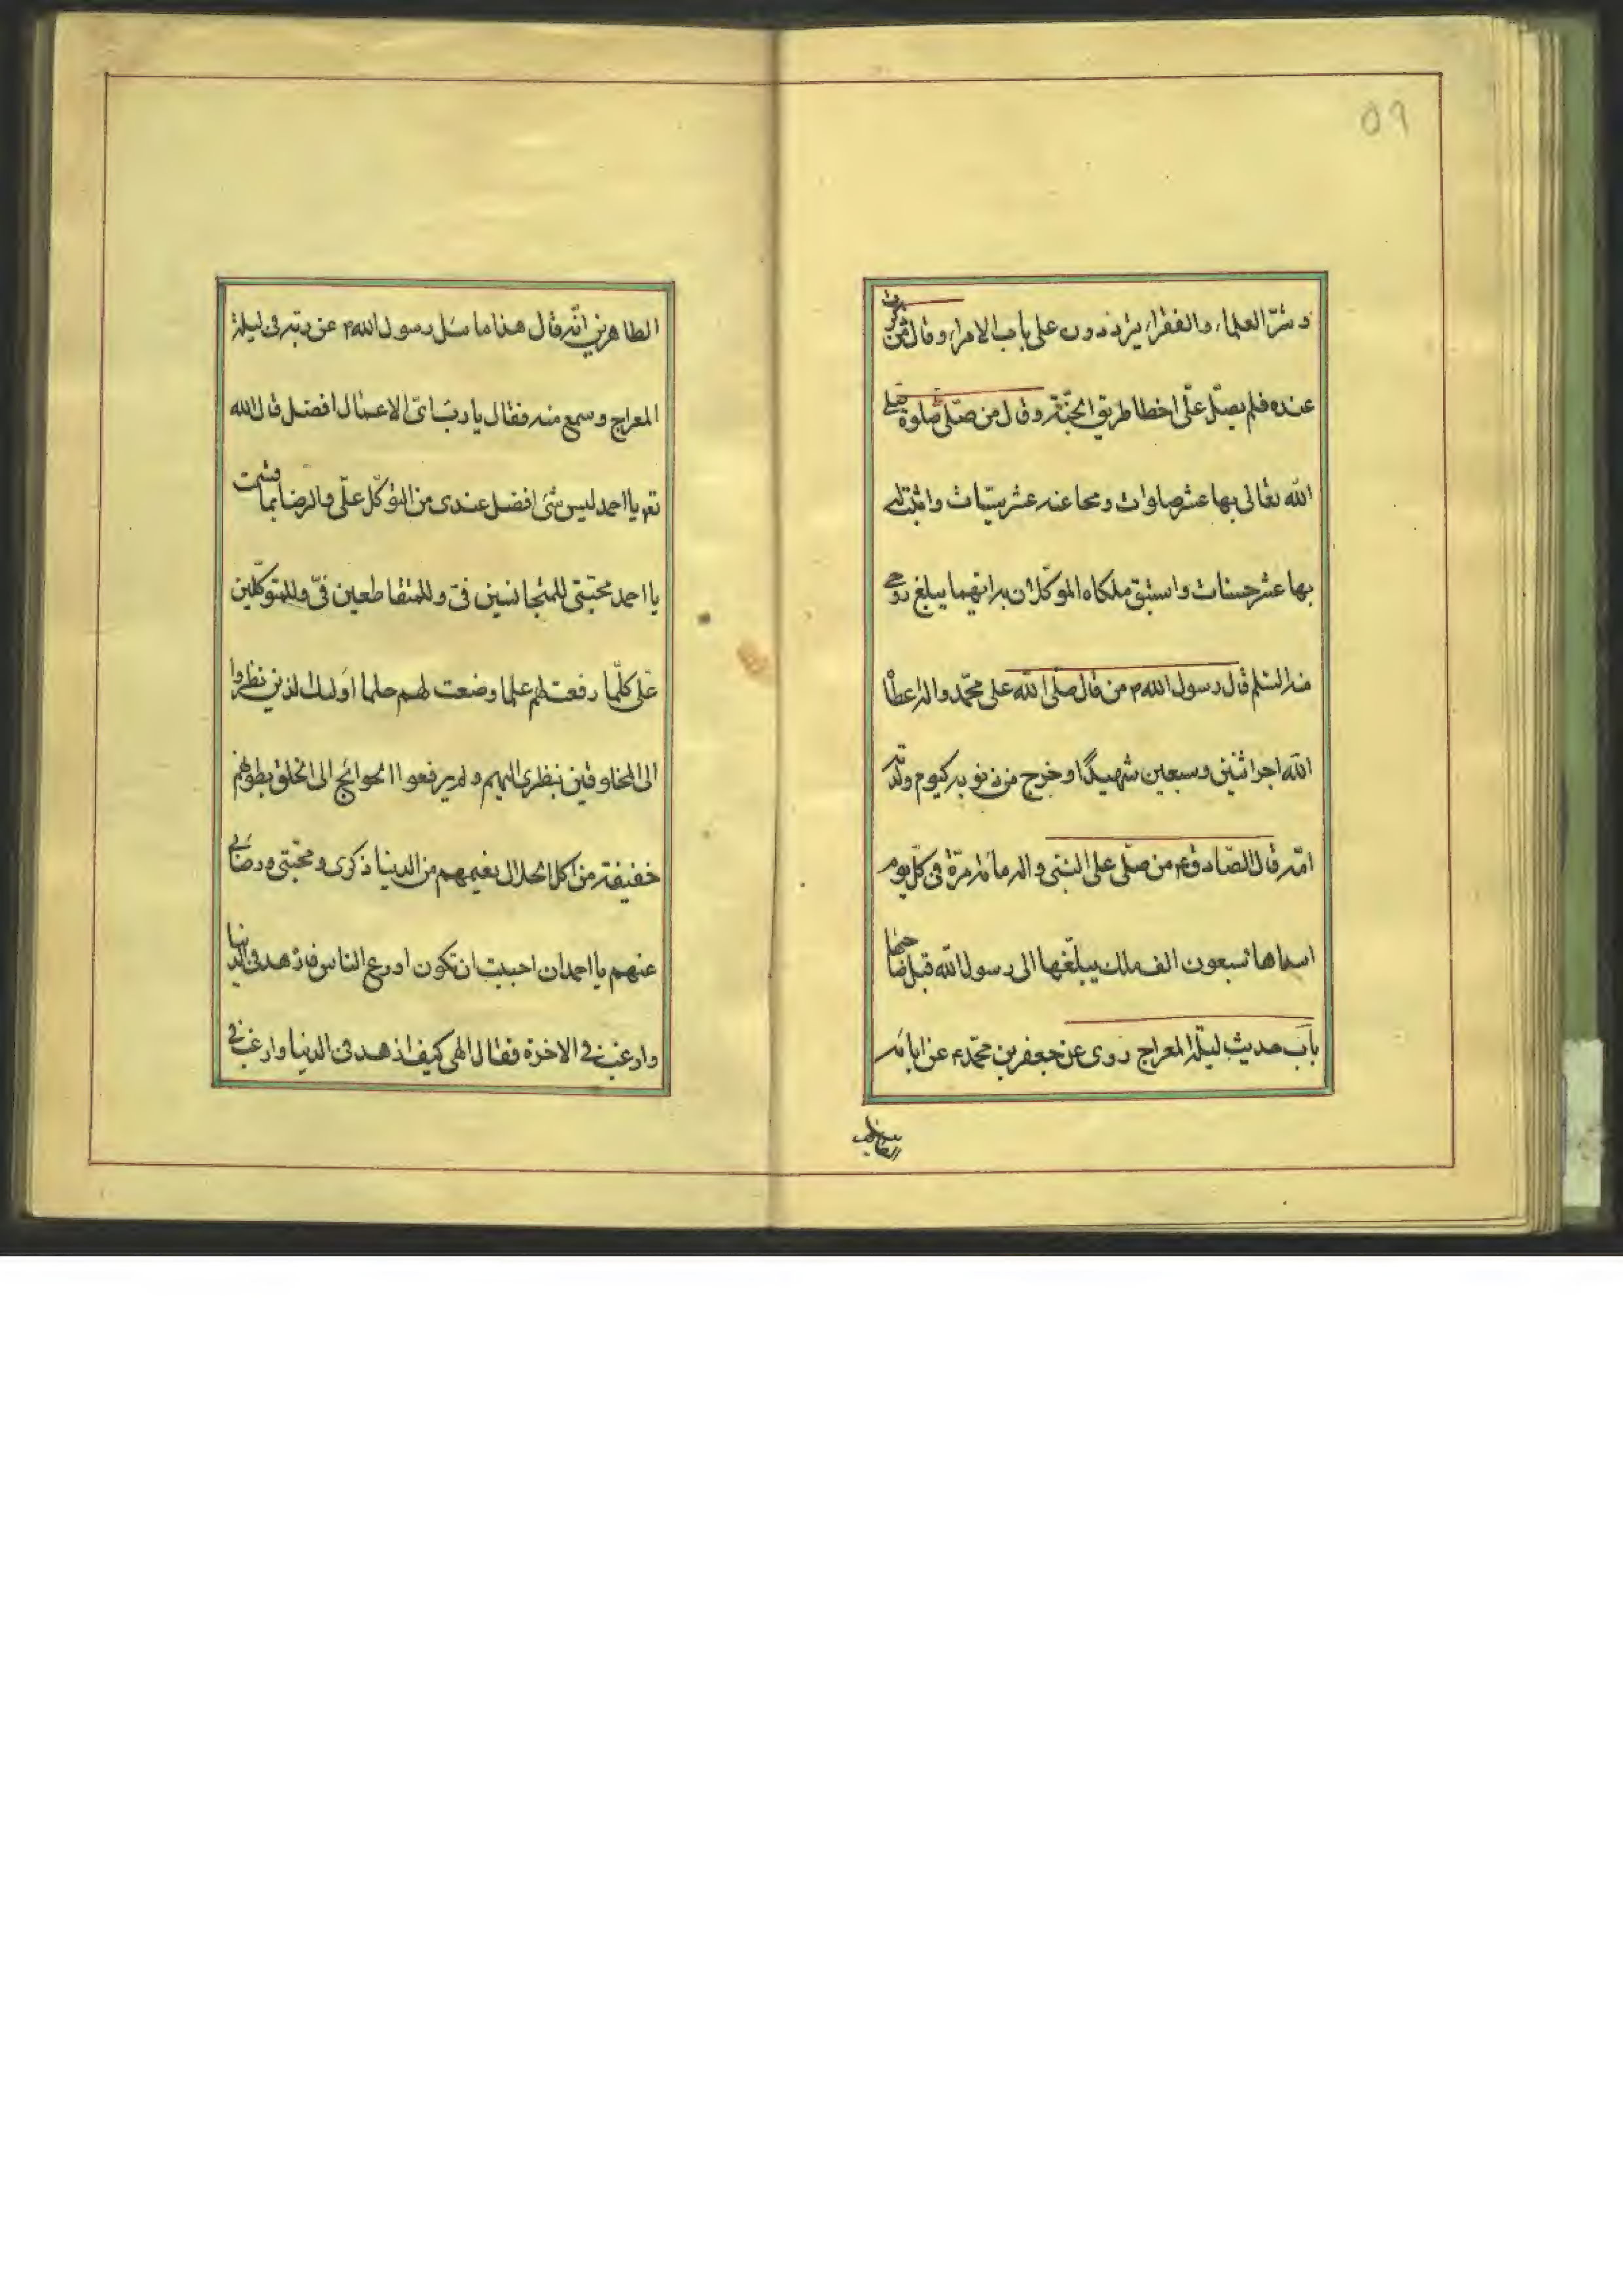 ٥٩
و شرّ العلماء والفقراء يترددون على باب الامراء وقال من ذكرت
عنده فلم يصلّ علّى اخطا طريق الجنّة وقال من صلّى صلوة صلى
الله تعالى بها عشر صلوات ومحا عنه عشر سيّات واثبت له
بها عشر حسنات واستبق ملكاه الموكلان به ايهما يبلغ روحى
منه السّلم قال رسول الله ص من قال صلّى الله على محمّد واله اعطا
الله اجر اثنين وسبعين شهيدًا وخرج من ذنوبه كيوم ولدته
امّه قال الصّادق ع من صلّى على النبّى واله مائة مرّة فى كلّ يوم
اسداها سبعون الف ملك يبلّغها الى رسول الله قبل صاحبها
باب حديث ليلة المعراج روى عن جعفر بن محمّد ع عن ابائه
الطاهرين
الطاهرين انّه قال هذا ما سئل رسول الله ص عن ربّه فى ليلة
المعراج وسمع منه فقال يا ربّ اىّ الاعمال افضل قال الله
تعم يا احمد ليس شئ افضل عندى من التوكّل علّى والرضا بما قسمت
يا احمد محبّتى للمتجانسين فىّ وللمتقاطعين فىّ وللمتوكّلين
علىّ كلّما رفعت لهم علما وضعت لهم حلما اولئك الذين نظروا
الى المخلوقين بنظرى اليهم ولم يرفعوا الحوائج الى الخلق بطونهم
خفيفة من اكل الحلال نعيمهم من الدنيا ذكرى ومحبّتى ورضائى
عنهم يا احمد ان احببت ان تكون اورع الناس فازهد فى الدنيا
وارغب فى الاخرة فقال الهى كيف ازهد فى الدنيا وارغب فى